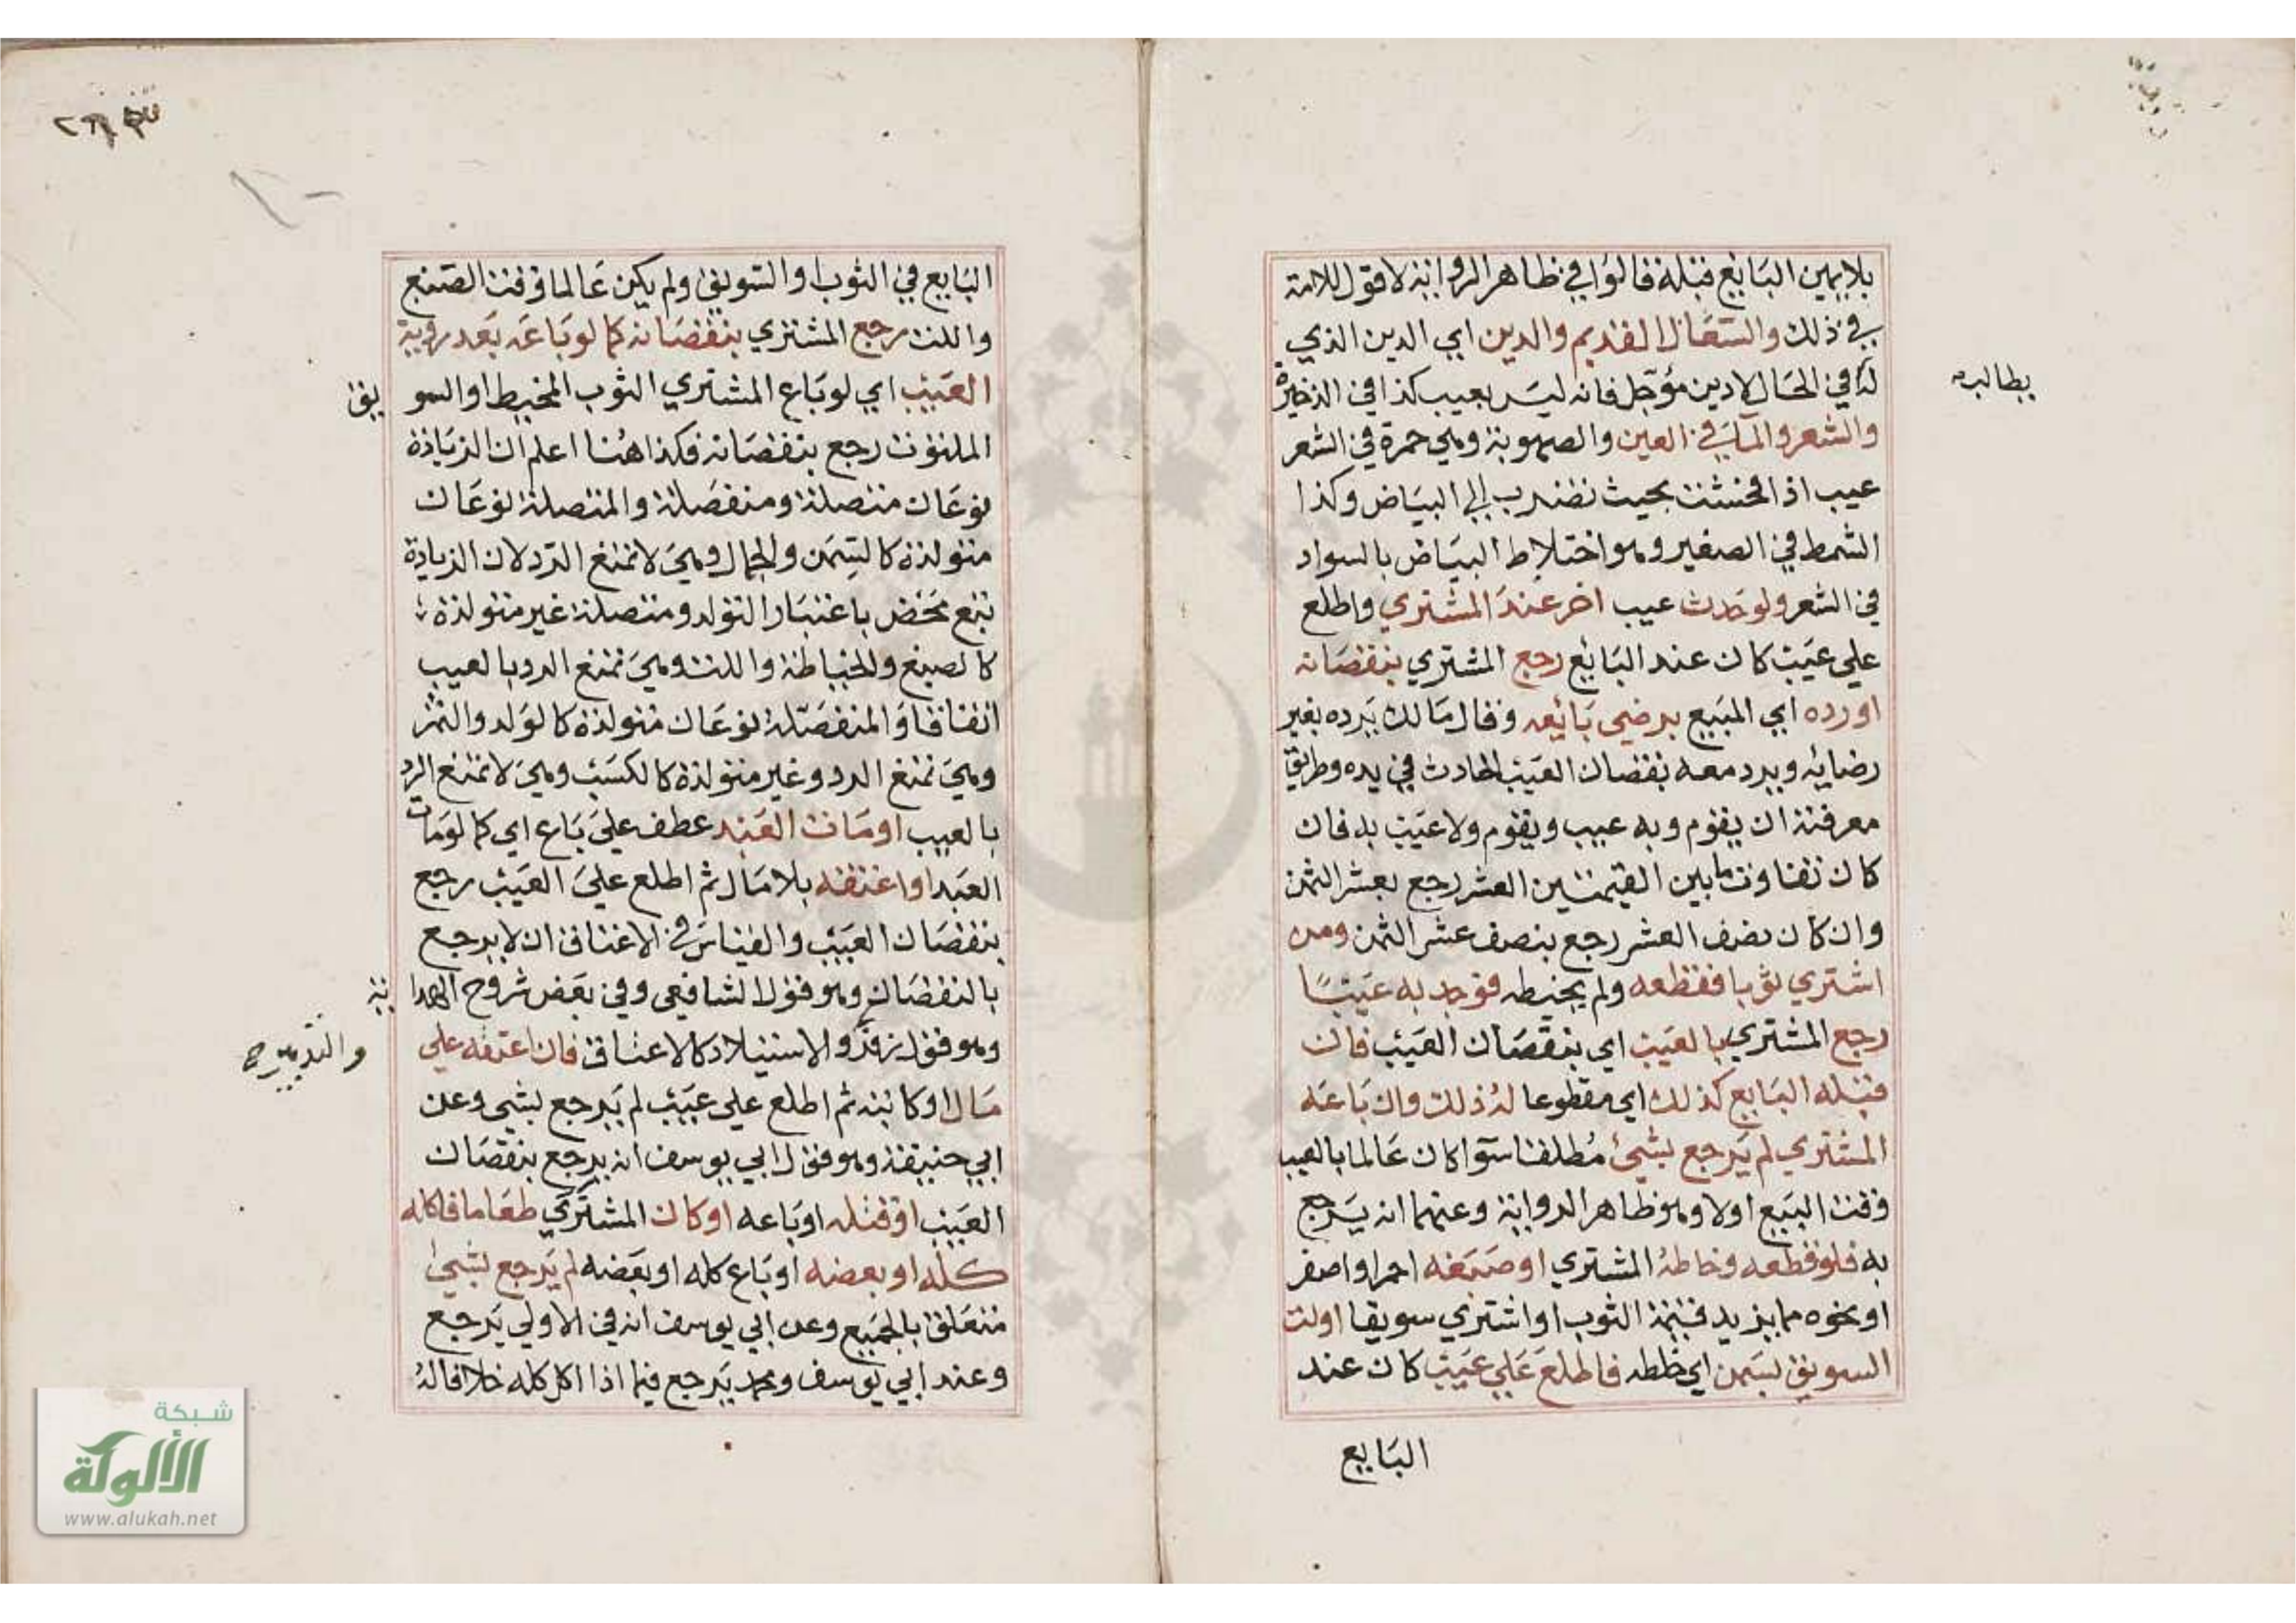 بلا يمين البايع قبله قالوا في ظاهر الرواية لا قول للامة
في ذلك والسعال القديم والدين اي الدين الذي
يطالبه
له في الحال لا دين مؤجل فانه ليس بعيب كذا في الذخيرة
والشعر والماء في العين والصهوبة وهي حمرة في الشعر
عيب اذا فحشت بحيث تضرب الي البياض وكذا
الشمط في الصغير وهو اختلاط البياض بالسواد
في الشعر ولو حدث عيب اخر عند المشتري واطلع
علي عيب كان عند البائع رجع المشتري بنقصانه
او رده اي المبيع برضي بائعه وقال مالك يرده بغير
رضايه ويرد معه نقصان العيب الحادث في يده وطريق
معرفته ان يقوم وبه عيب ويقوم ولا عيب به فان
كان تفاوت ما بين القيمتين العشر رجع بعشر الثمن
وان كان نصف العشر رجع بنصف عشر الثمن ومن
اشتري ثوبا فقطعه ولم يخيطه فوجد به عيبا
رجع المشتري بالعيب اي بنقصان العيب فان
قبله البايع كذلك اي مقطوعا له ذلك وان باعه
المشتري لم يرجع بشئ مطلقا سوآ كان عالما بالعيب
وقت البيع اولا وهو ظاهر الرواية وعنهما انه يرجع
به فلو قطعه وخاطه المشتري او صبغه احمر او اصفر
او نحوه مما يزيد قيمة الثوب او اشتري سويقا اولت
السويق بسمن اي خلطه فاطلع علي عيب كان عند
البايع
البايع في الثوب او السويق ولم يكن عالما وقت الصبغ
واللت رجع المشتري بنقصانه كما لو باعه بعد روية
العيب اي لو باع المشتري الثوب المخيط او السو يق
الملتوت رجع بنقصانه فكذا هنا اعلم ان الزيادة
نوعان متصلة ومنفصلة والمتصلة نوعان
متولدة كالسمن والجمال وهي لا تمنع الرد لان الزيادة
تبع محض باعتبار التولد ومتصلة غير متولدة
كالصبغ والخياطة واللت وهي تمنع الرد بالعيب
اتفاقا والمنفصلة نوعان متولدة كالولد والثمر
وهي تمنع الرد وغير متولدة كالكسب وهي لا تمنع الرد
بالعيب او مات العبد عطف علي باع اي كما لو مات
العبد او اعتقه بلا مال ثم اطلع علي العيب رجع
بنقصان العيب والقياس في الاعتاق ان لا يرجع
بالنقصان وهو قول الشافعي وفي بعض شروح الهدا ية
وهو قول زفر والاستيلاد كالاعتاق فان اعتقه علي
والتدبير صح
مال او كاتبه ثم اطلع علي عيب لم يرجع بشي وعن
ابي حنيفة وهو قول ابي يوسف انه يرجع بنقصان
العيب او قتله او باعه او كان المشتري طعاما فاكله
كله او بعضه او باع كله او بعضه لم يرجع بشئ
متعلق بالجميع وعن ابي يوسف انه في الاولي يرجع
وعند ابي يوسف ومحمد يرجع فيما اذا اكل كله خلافا له
شبكة
الألوكة
www.alukah.net